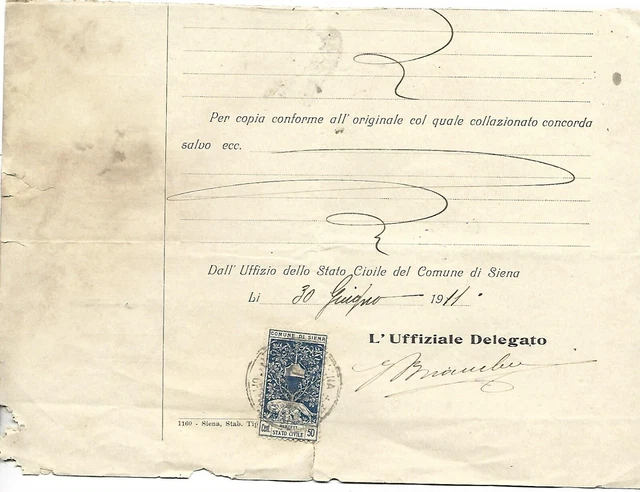 Per copia conforme all' originale col quale collazionato concorda
salvo ecc.
Dall' Uffizio dello Stato Civile del Comune di Siena
Li 30 Giugno 1911.
L' Uffiziale Delegato
COMUNE DI SIENA
STATO CIVILE
Cent. 50
1160 - Siena, Stab. Tip